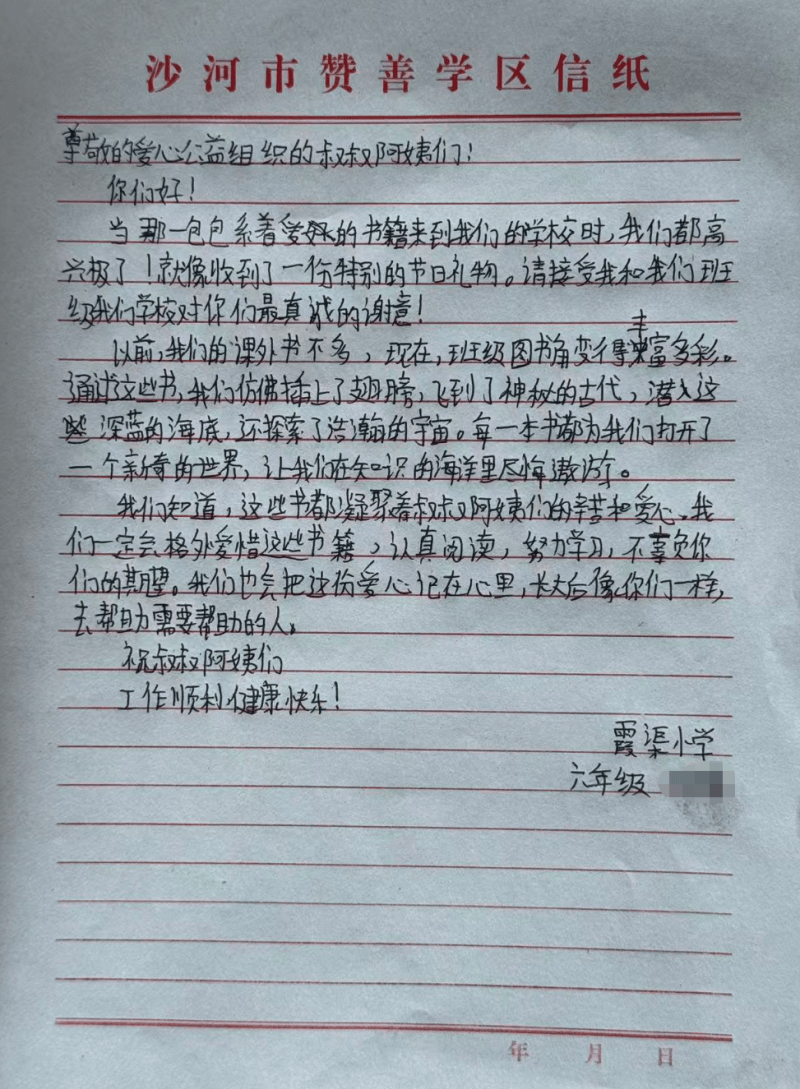 沙河市赞善学区信纸
尊敬的爱心公益组织的叔叔阿姨们!
你们好!
当那一包包系着爱的书籍来到我们的学校时,我们都高
兴极了!就像收到了一份特别的节日礼物。请接受我和我们班
级我们学校对你们最真诚的谢意!
以前,我们的课外书不多,现在,班级图书角变得丰富多彩。
通过这些书,我们仿佛插上了翅膀,飞到了神秘的古代,潜入这
些深蓝的海底,还探索了浩瀚的宇宙。每一本书都为我们打开了
一个新奇的世界,让我们在知识的海洋里尽情遨游。
我们知道,这些书都凝聚着叔叔阿姨们的辛苦和爱心。我
们一定会格外爱惜这些书籍,认真阅读,努力学习,不辜负你
们的期望。我们也会把这份爱心记在心里,长大后像你们一样,
去帮助需要帮助的人。
祝叔叔阿姨们
工作顺利健康快乐!
霞渠小学
六年级
年 月 日